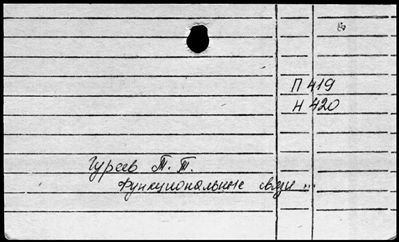 П 419
Н 420
Гуреев Т. Т.
Функциональные связи ...